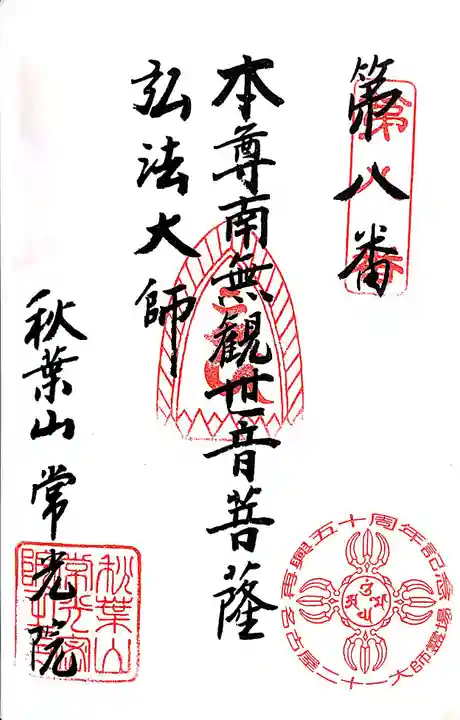 第八番
第八番
本尊南無観世音菩薩
弘法大師
秋葉山 常光院
秋葉山
常光院
再興五十周年記念
名古屋二十一大師霊場